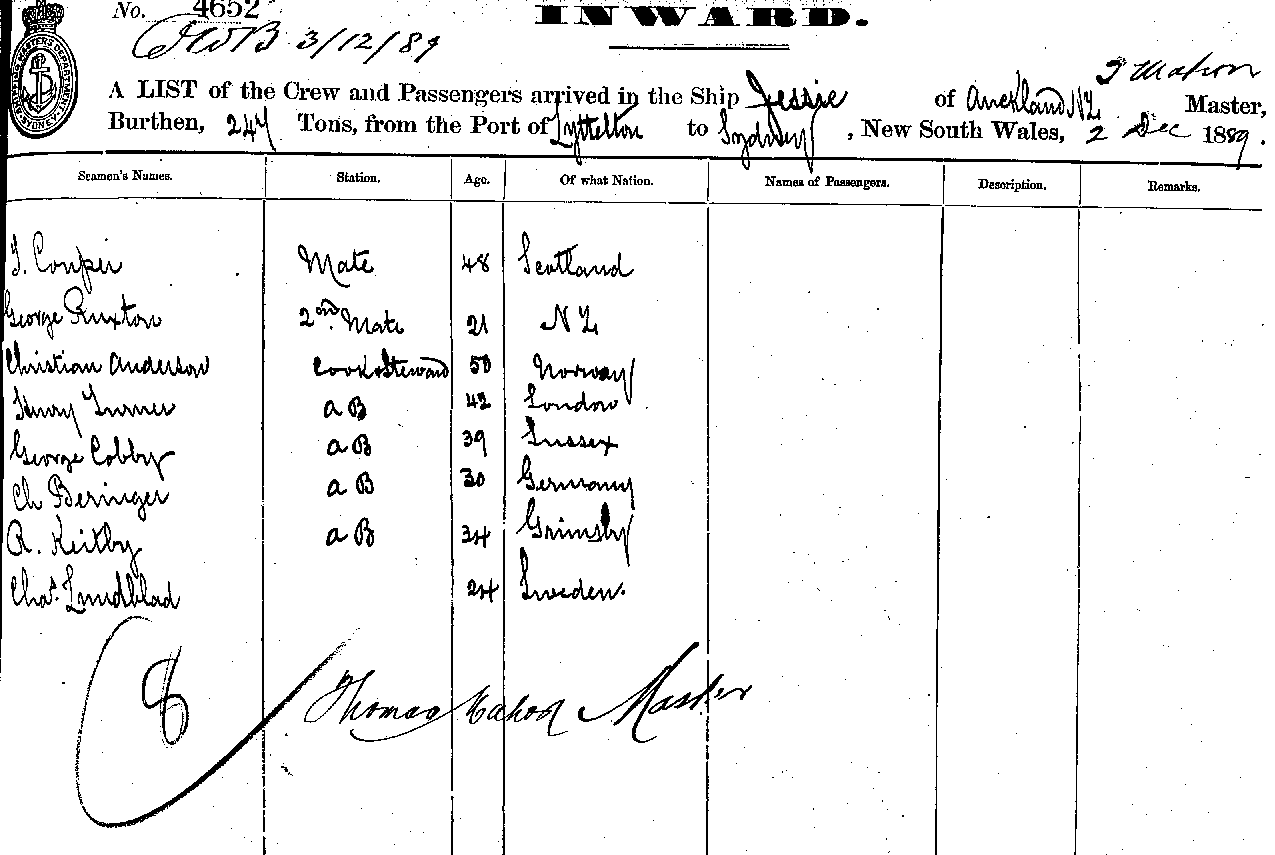 No. 4652
INWARD.
3/12/89
T Mahon
A LIST of the Crew and Passengers arrived in the Ship Jessie of Auckland NZ Master,
Burthen, 247 Tons, from the Port of Lyttelton to Sydney, New South Wales, 2 Dec 1889.
Seamen's Names. Station. Age. Of what Nation. Names of Passengers. Description. Remarks.
Mate 48 Scotland
George Ruxton 2nd Mate 21 NZ
Christian Anderson Cook & Steward 50 Norway
Henry Turner a B 42 London
George Cobby a B 39 Sussex
Ch Beringer a B 30 Germany
R. Keitby a B 34 Grimsby
Chas. Lundblad 24 Sweden.
8
Thomas Mahon Master